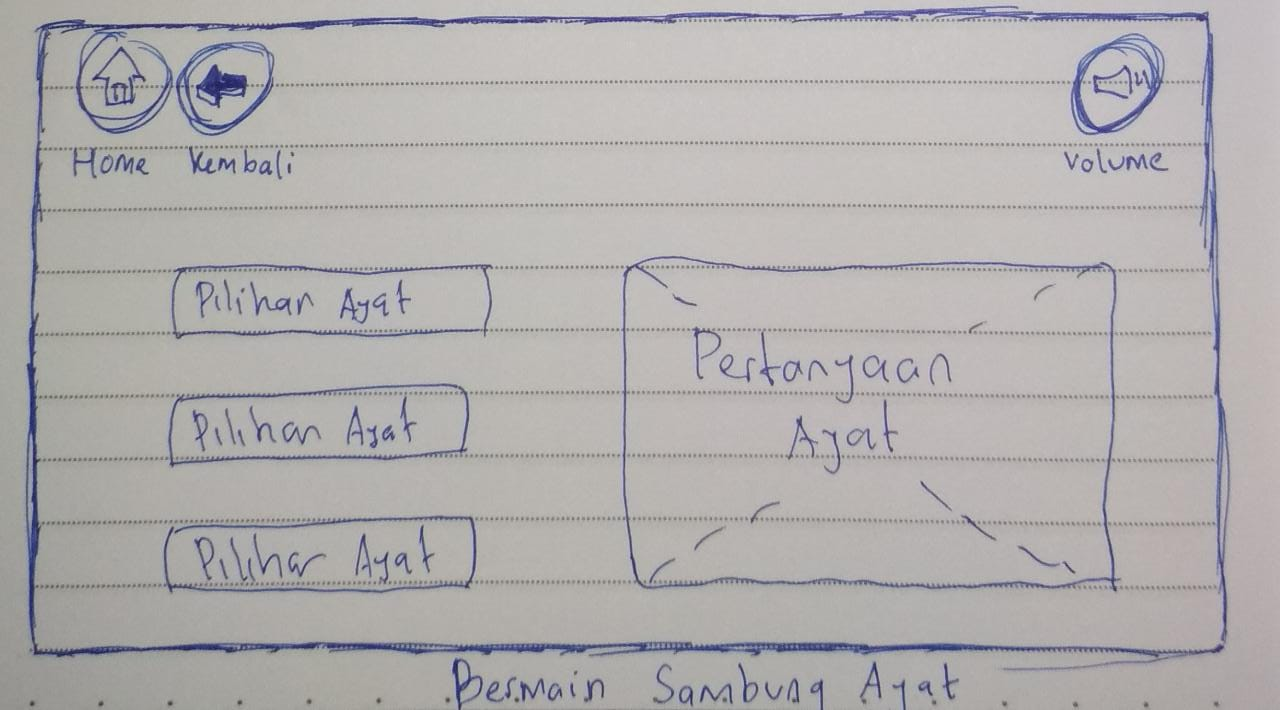 Home Kembali Volume
Pilihan Ayat
Pertanyaan
Ayat
Pilihan Ayat
Pilihan Ayat
Bermain Sambung Ayat